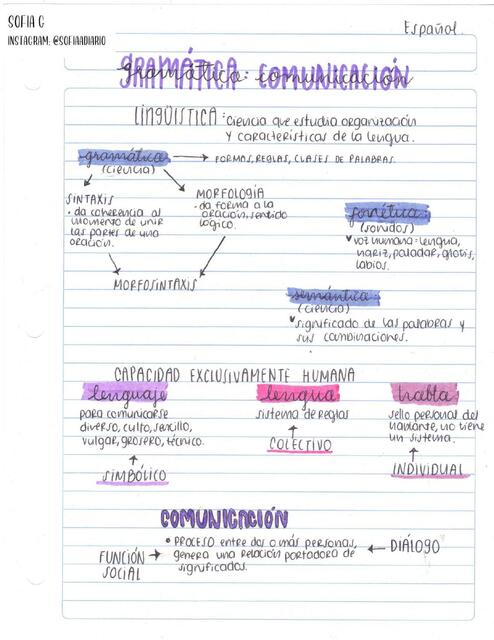 SOFIA G
INSTAGRAM: @SOFIAADIARIO
Español.
GRAMÁTICA: COMUNICACIÓN
gramática: comunicación
LINGÜÍSTICA: ciencia que estudia organización
y características de la lengua.
gramática → FORMAS, REGLAS, CLASES DE PALABRAS.
(ciencia)
SINTAXIS
• da coherencia al
momento de unir
las partes de una
oración.
MORFOLOGÍA
• da forma a la
oración, sentido
lógico.
MORFOSINTAXIS
fonética
(sonidos)
voz humana: lengua,
nariz, paladar, glotis,
labios.
semántica
(ciencia)
significado de las palabras y
sus combinaciones.
CAPACIDAD EXCLUSIVAMENTE HUMANA
lenguaje
para comunicarse
diverso, culto, sencillo,
vulgar, grosero, técnico.
↑
SIMBÓLICO
lengua
sistema de reglas
↑
COLECTIVO
habla
sello personal del
hablante, no tiene
un sistema.
↑
INDIVIDUAL
COMUNICACIÓN
• PROCESO entre dos o más personas,
genera una relación portadora de
significados.
FUNCIÓN →
SOCIAL
← DIÁLOGO